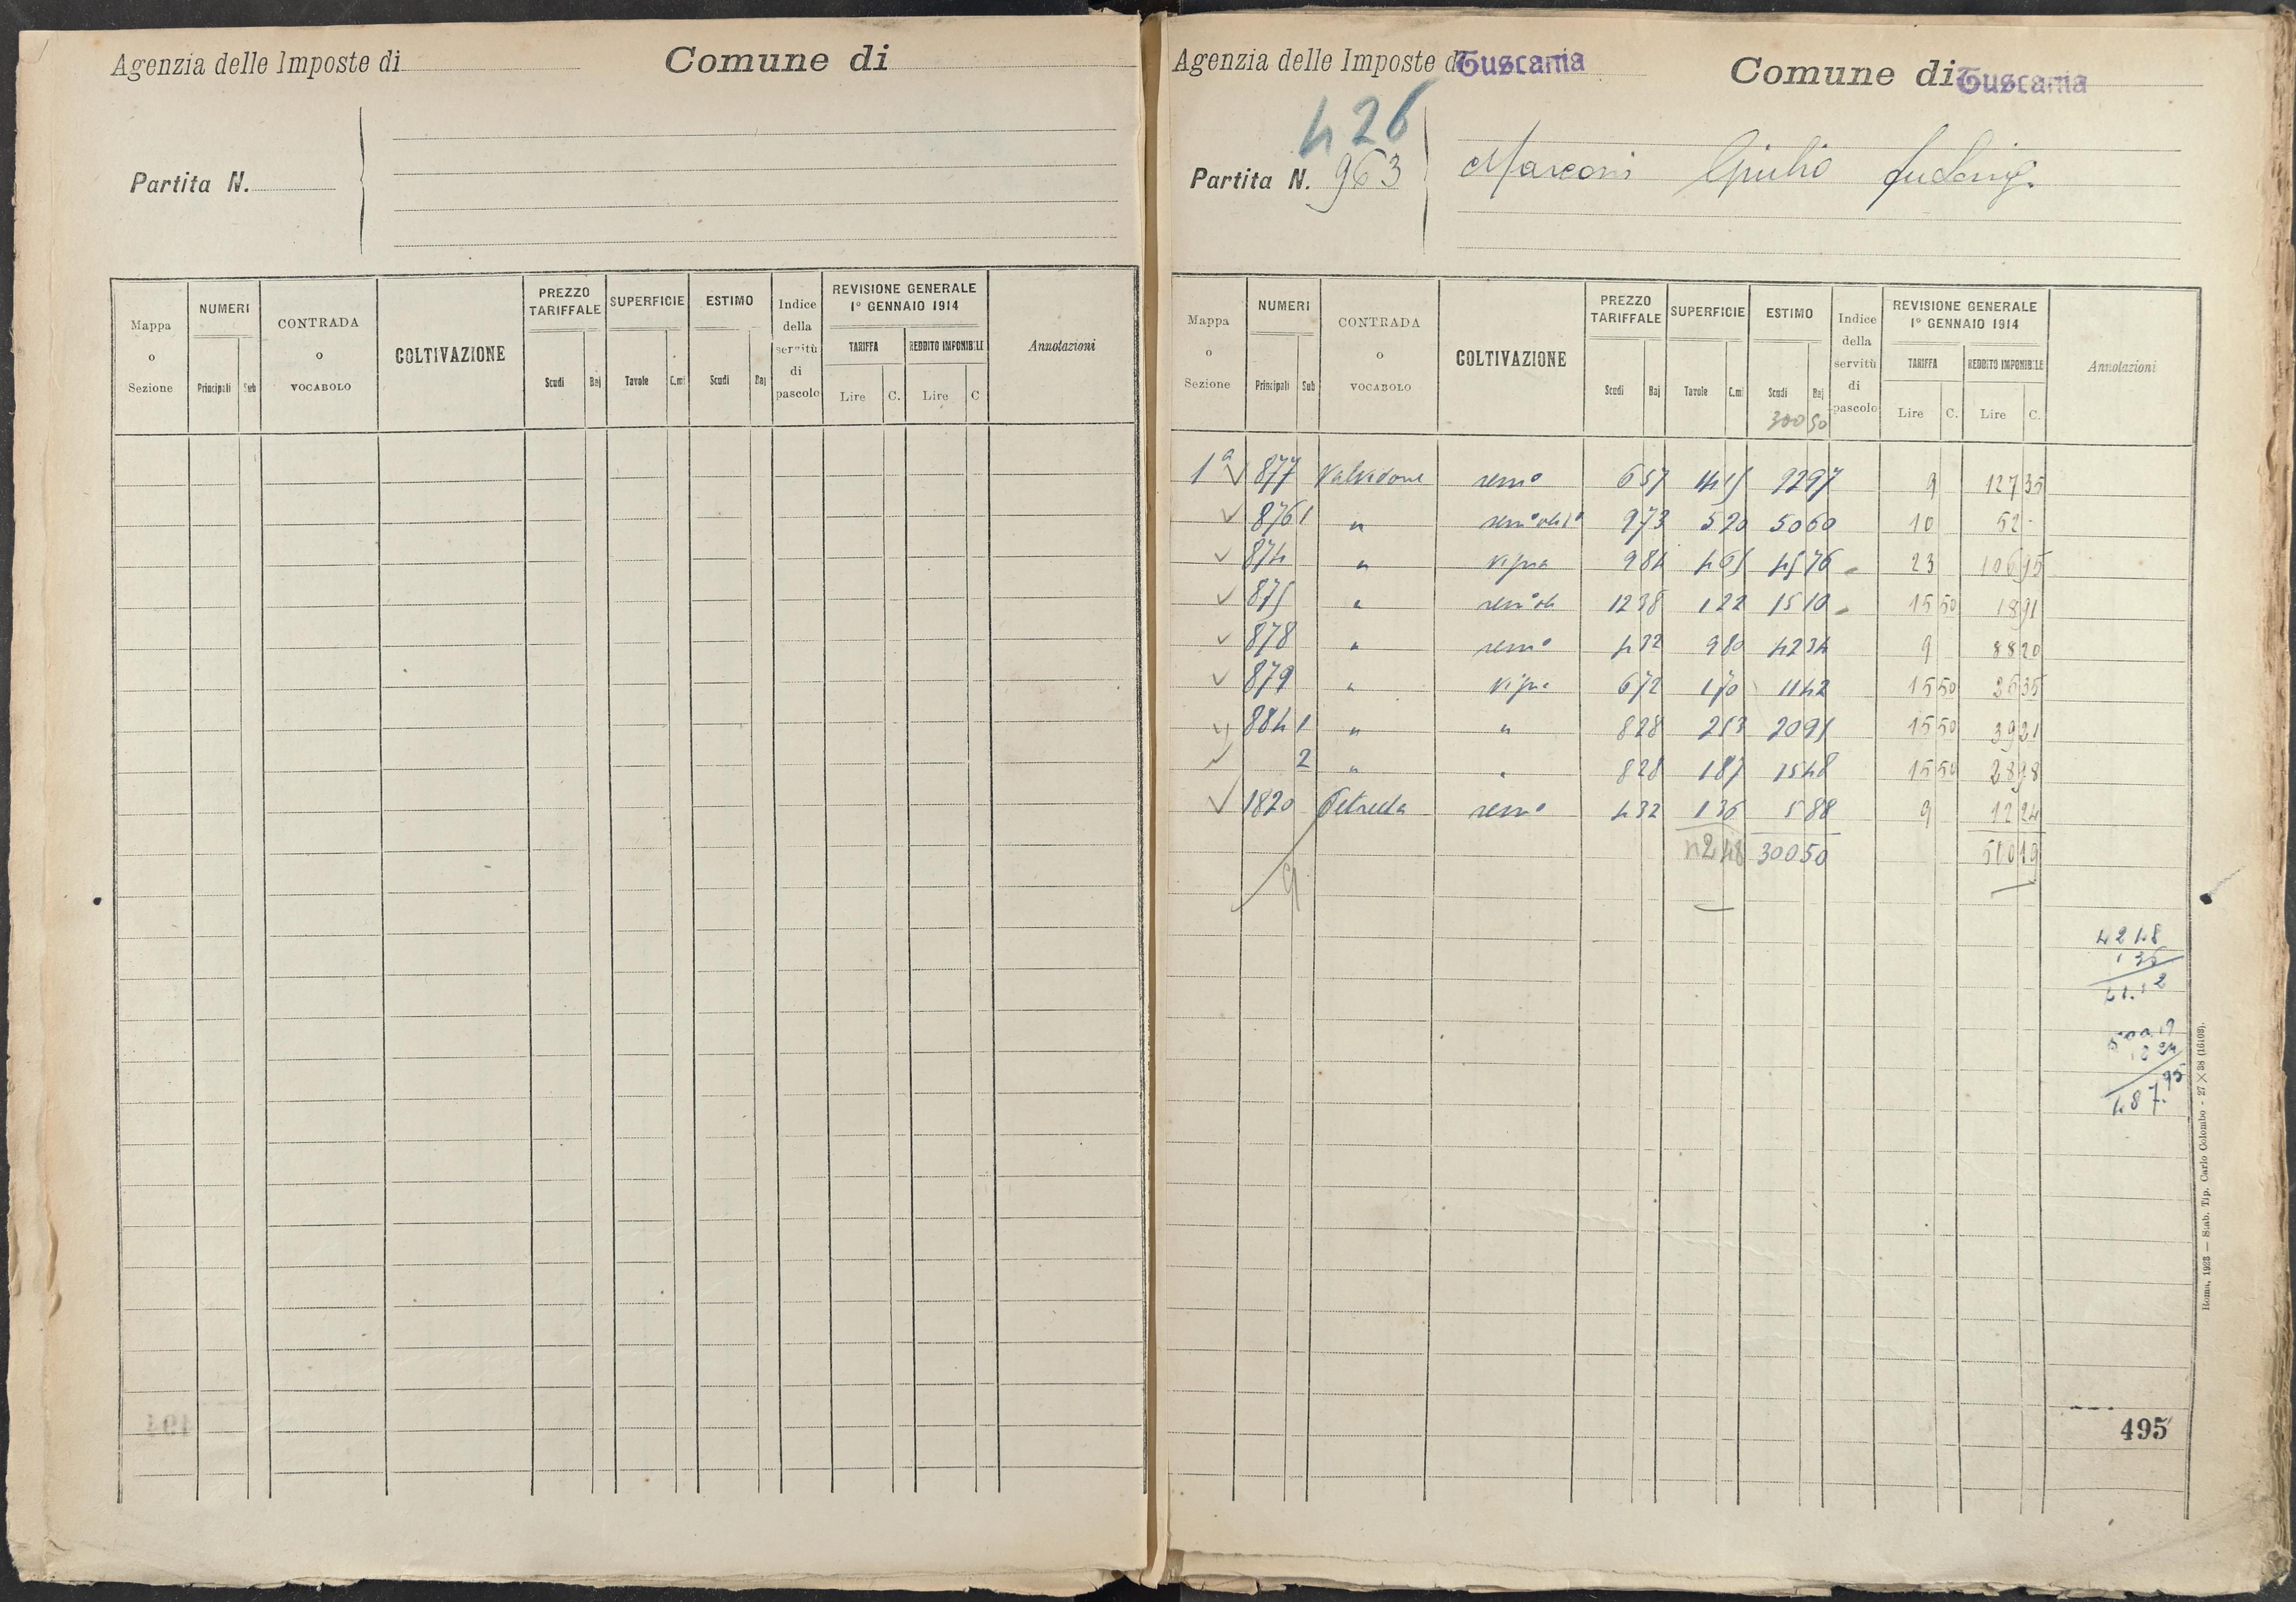 Agenzia delle Imposte di
Comune di
Partita N.
Mappa o Sezione
NUMERI
Principali Sub
CONTRADA o VOCABOLO
COLTIVAZIONE
PREZZO TARIFFALE
Scudi Baj
SUPERFICIE
Tavole C.mi
ESTIMO
Scudi Baj
Indice della servitù di pascolo
REVISIONE GENERALE
1º GENNAIO 1914
TARIFFA
Lire C.
REDDITO IMPONIBILE
Lire C
Annotazioni
Agenzia delle Imposte di Tuscania
Comune di Tuscania
426
Partita N. 963
Marconi Giulio fu Luigi
Mappa o Sezione
NUMERI
Principali Sub
CONTRADA o VOCABOLO
COLTIVAZIONE
PREZZO TARIFFALE
Scudi Baj
SUPERFICIE
Tavole C.mi
ESTIMO
Scudi Baj
300 50
Indice della servitù di pascolo
REVISIONE GENERALE
1º GENNAIO 1914
TARIFFA
Lire C.
REDDITO IMPONIBILE
Lire C.
Annotazioni
1ª 877 Valvidone semo 657 1415 9297 9 127 35
876 1 " 973 520 5060 10 52 -
874 " vigna 984 465 4576 23 106 95
875 " 1238 122 1510 15 50 18 91
878 " semo 432 980 4234 9 88 20
879 " vigna 672 170 1142 15 50 26 35
884 1 " " 828 253 2095 15 50 39 21
2 " " 828 187 1548 15 50 28 98
1820 semo 432 136 588 9 12 24
42 48 300 50 500 19
9
4248
136
41.12
500.19
12 24
487.95
495
Roma, 1923 — Stab. Tip. Carlo Colombo - 27 × 38 (16108).